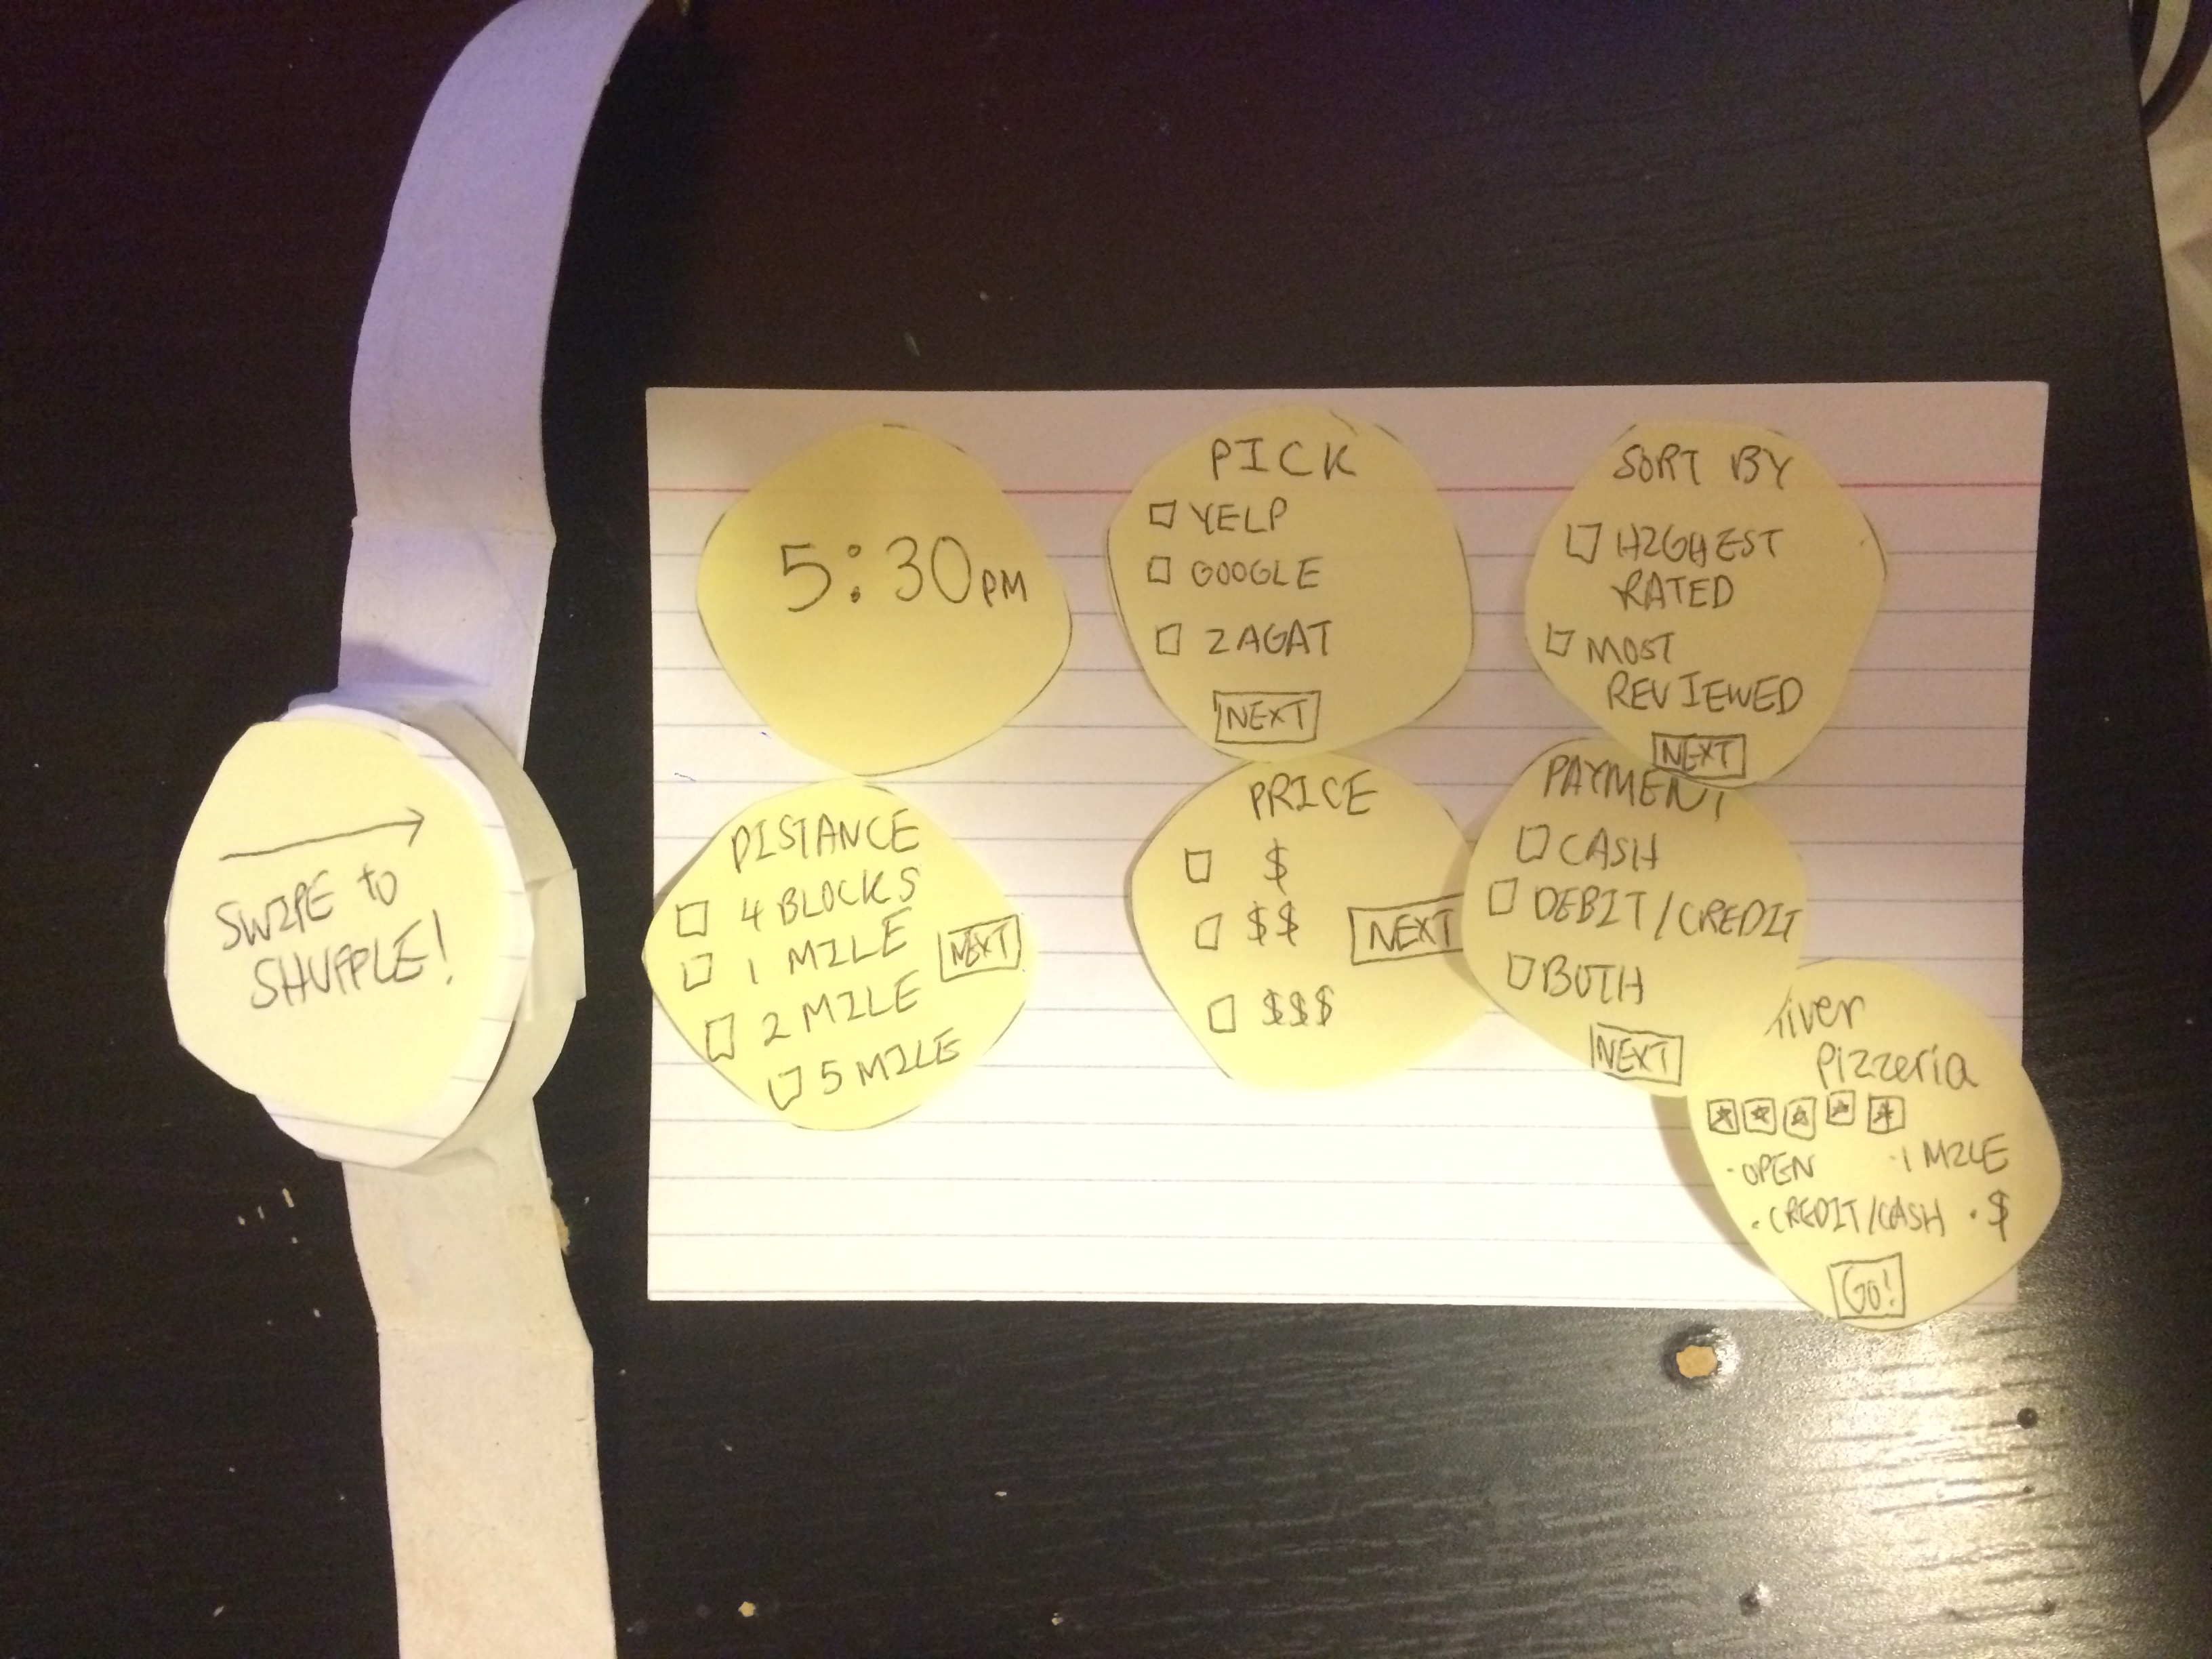 SWIPE to
SHUFFLE!
5:30 PM
PICK
YELP
GOOGLE
ZAGAT
NEXT
SORT BY
HIGHEST
RATED
MOST
REVIEWED
NEXT
DISTANCE
4 BLOCKS
1 MILE
2 MILE
5 MILE
NEXT
PRICE
$
$$
$$$
NEXT
PAYMENT
CASH
DEBIT/CREDIT
BOTH
NEXT
Pizzeria
· OPEN · 1 MILE
· CREDIT/CASH · $
GO!